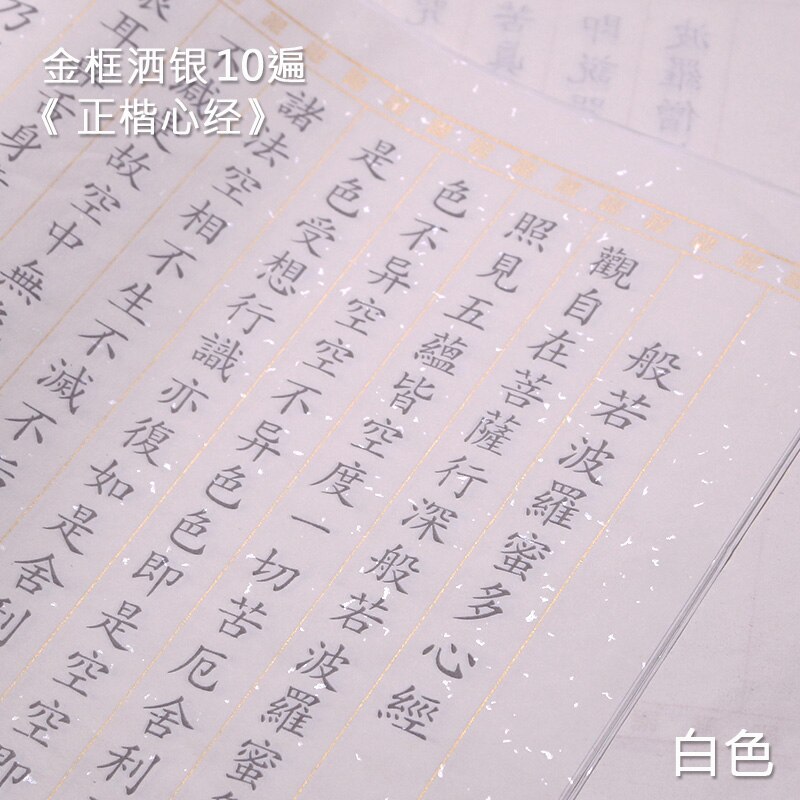 金框洒银10遍
《正楷心经》
般若波羅蜜多心經
觀自在菩薩行深般若波羅蜜
照見五蘊皆空度一切苦厄舍利
色不异空空不异色色即是空空即
是色受想行識亦復如是舍利
諸法空相不生不滅不
不減故空中無
耳舌身
乃
波羅僧
即説
苦真
白色